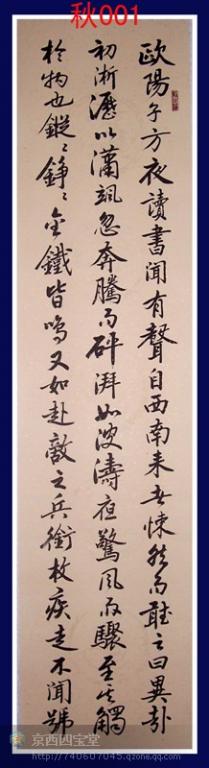 秋001
歐陽子方夜讀書聞有聲自西南来者悚然而聽之曰異哉
初淅瀝以瀟颯忽奔騰而砰湃如波濤夜驚風雨驟至其觸
於物也鏦〻錚〻金鐵皆鳴又如赴敵之兵銜枚疾走不聞號
京西四宝堂
http://740607045.qzone.qq.com